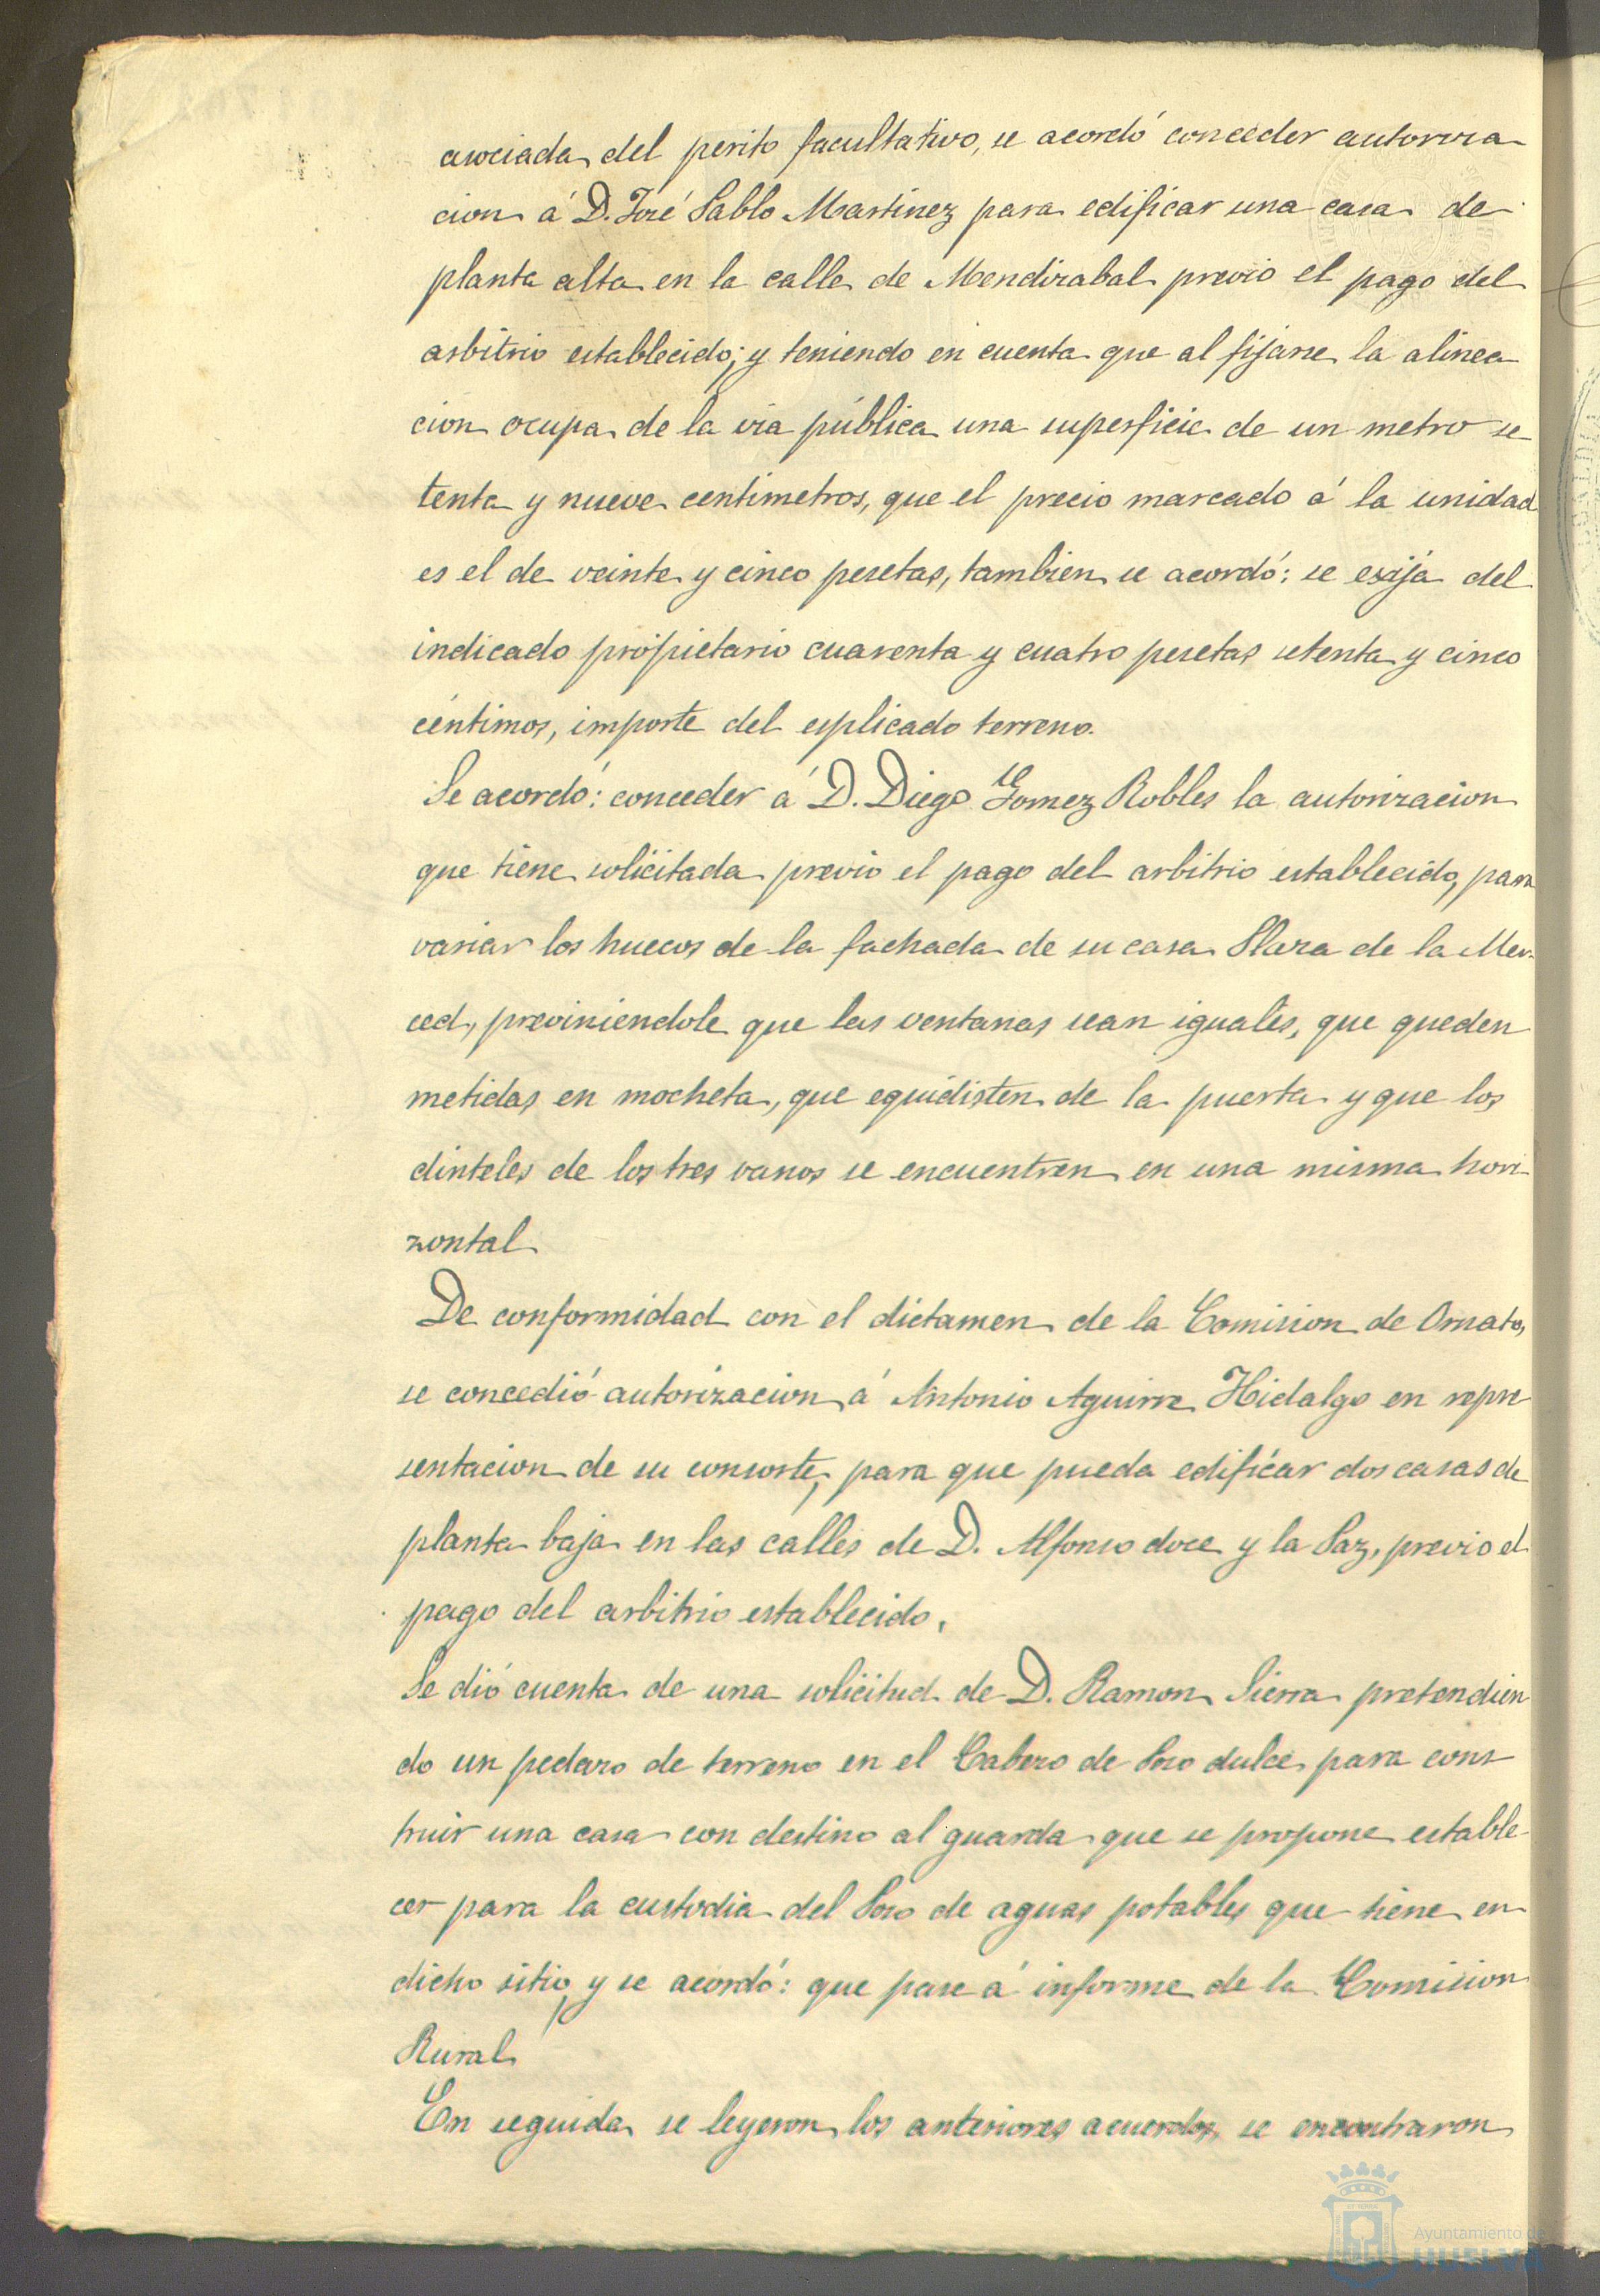 asociada del perito facultativo, se acordó conceder autoriza
cion á D. José Pablo Martinez para edificar una casa de
planta alta en la calle de Mendizabal previo el pago del
arbitrio establecido; y teniendo en cuenta que al fijarse la alinea
cion ocupa de la via pública una superficie de un metro se-
tenta y nueve centimetros, que el precio marcado á la unidad
es el de veinte y cinco pesetas, tambien se acordó: se exija del
indicado propietario cuarenta y cuatro pesetas setenta y cinco
céntimos, importe del esplicado terreno.
Se acordó: conceder á D. Diego Gomez Robles la autorizacion
que tiene solicitada previo el pago del arbitrio establecido, para
variar los huecos de la fachada de su casa Plaza de la Mer-
ced, previniendole que las ventanas sean iguales, que queden
metidas en mocheta, que equidisten de la puerta y que los
dinteles de los tres vanos se encuentren en una misma hori-
zontal.
De conformidad con el dictamen de la Comision de Ornato,
se concedió autorizacion á Antonio Aguirre Hidalgo en repre
sentacion de su consorte, para que pueda edificar dos casas de
planta baja en las calles de D. Alfonso doce y la Paz, previo el
pago del arbitrio establecido.
Se dió cuenta de una solicitud de D. Ramon Sierra pretendien
do un pedazo de terreno en el Cabezo de Pozo dulce para cons-
truir una casa con destino al guarda que se propone estable-
cer para la custodia del Pozo de aguas potables que tiene en
dicho sitio, y se acordó: que pase á informe de la Comision
Rural.
En seguida se leyeron los anteriores acuerdos, se encontraron
Ayuntamiento de
HUELVA